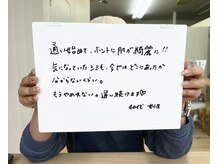 通い始めて、ホントに肌が綺麗に!!
気になっていたシミも、今やはどこにあったか
わからないくらい。
もうやめれない。通い続けます♡